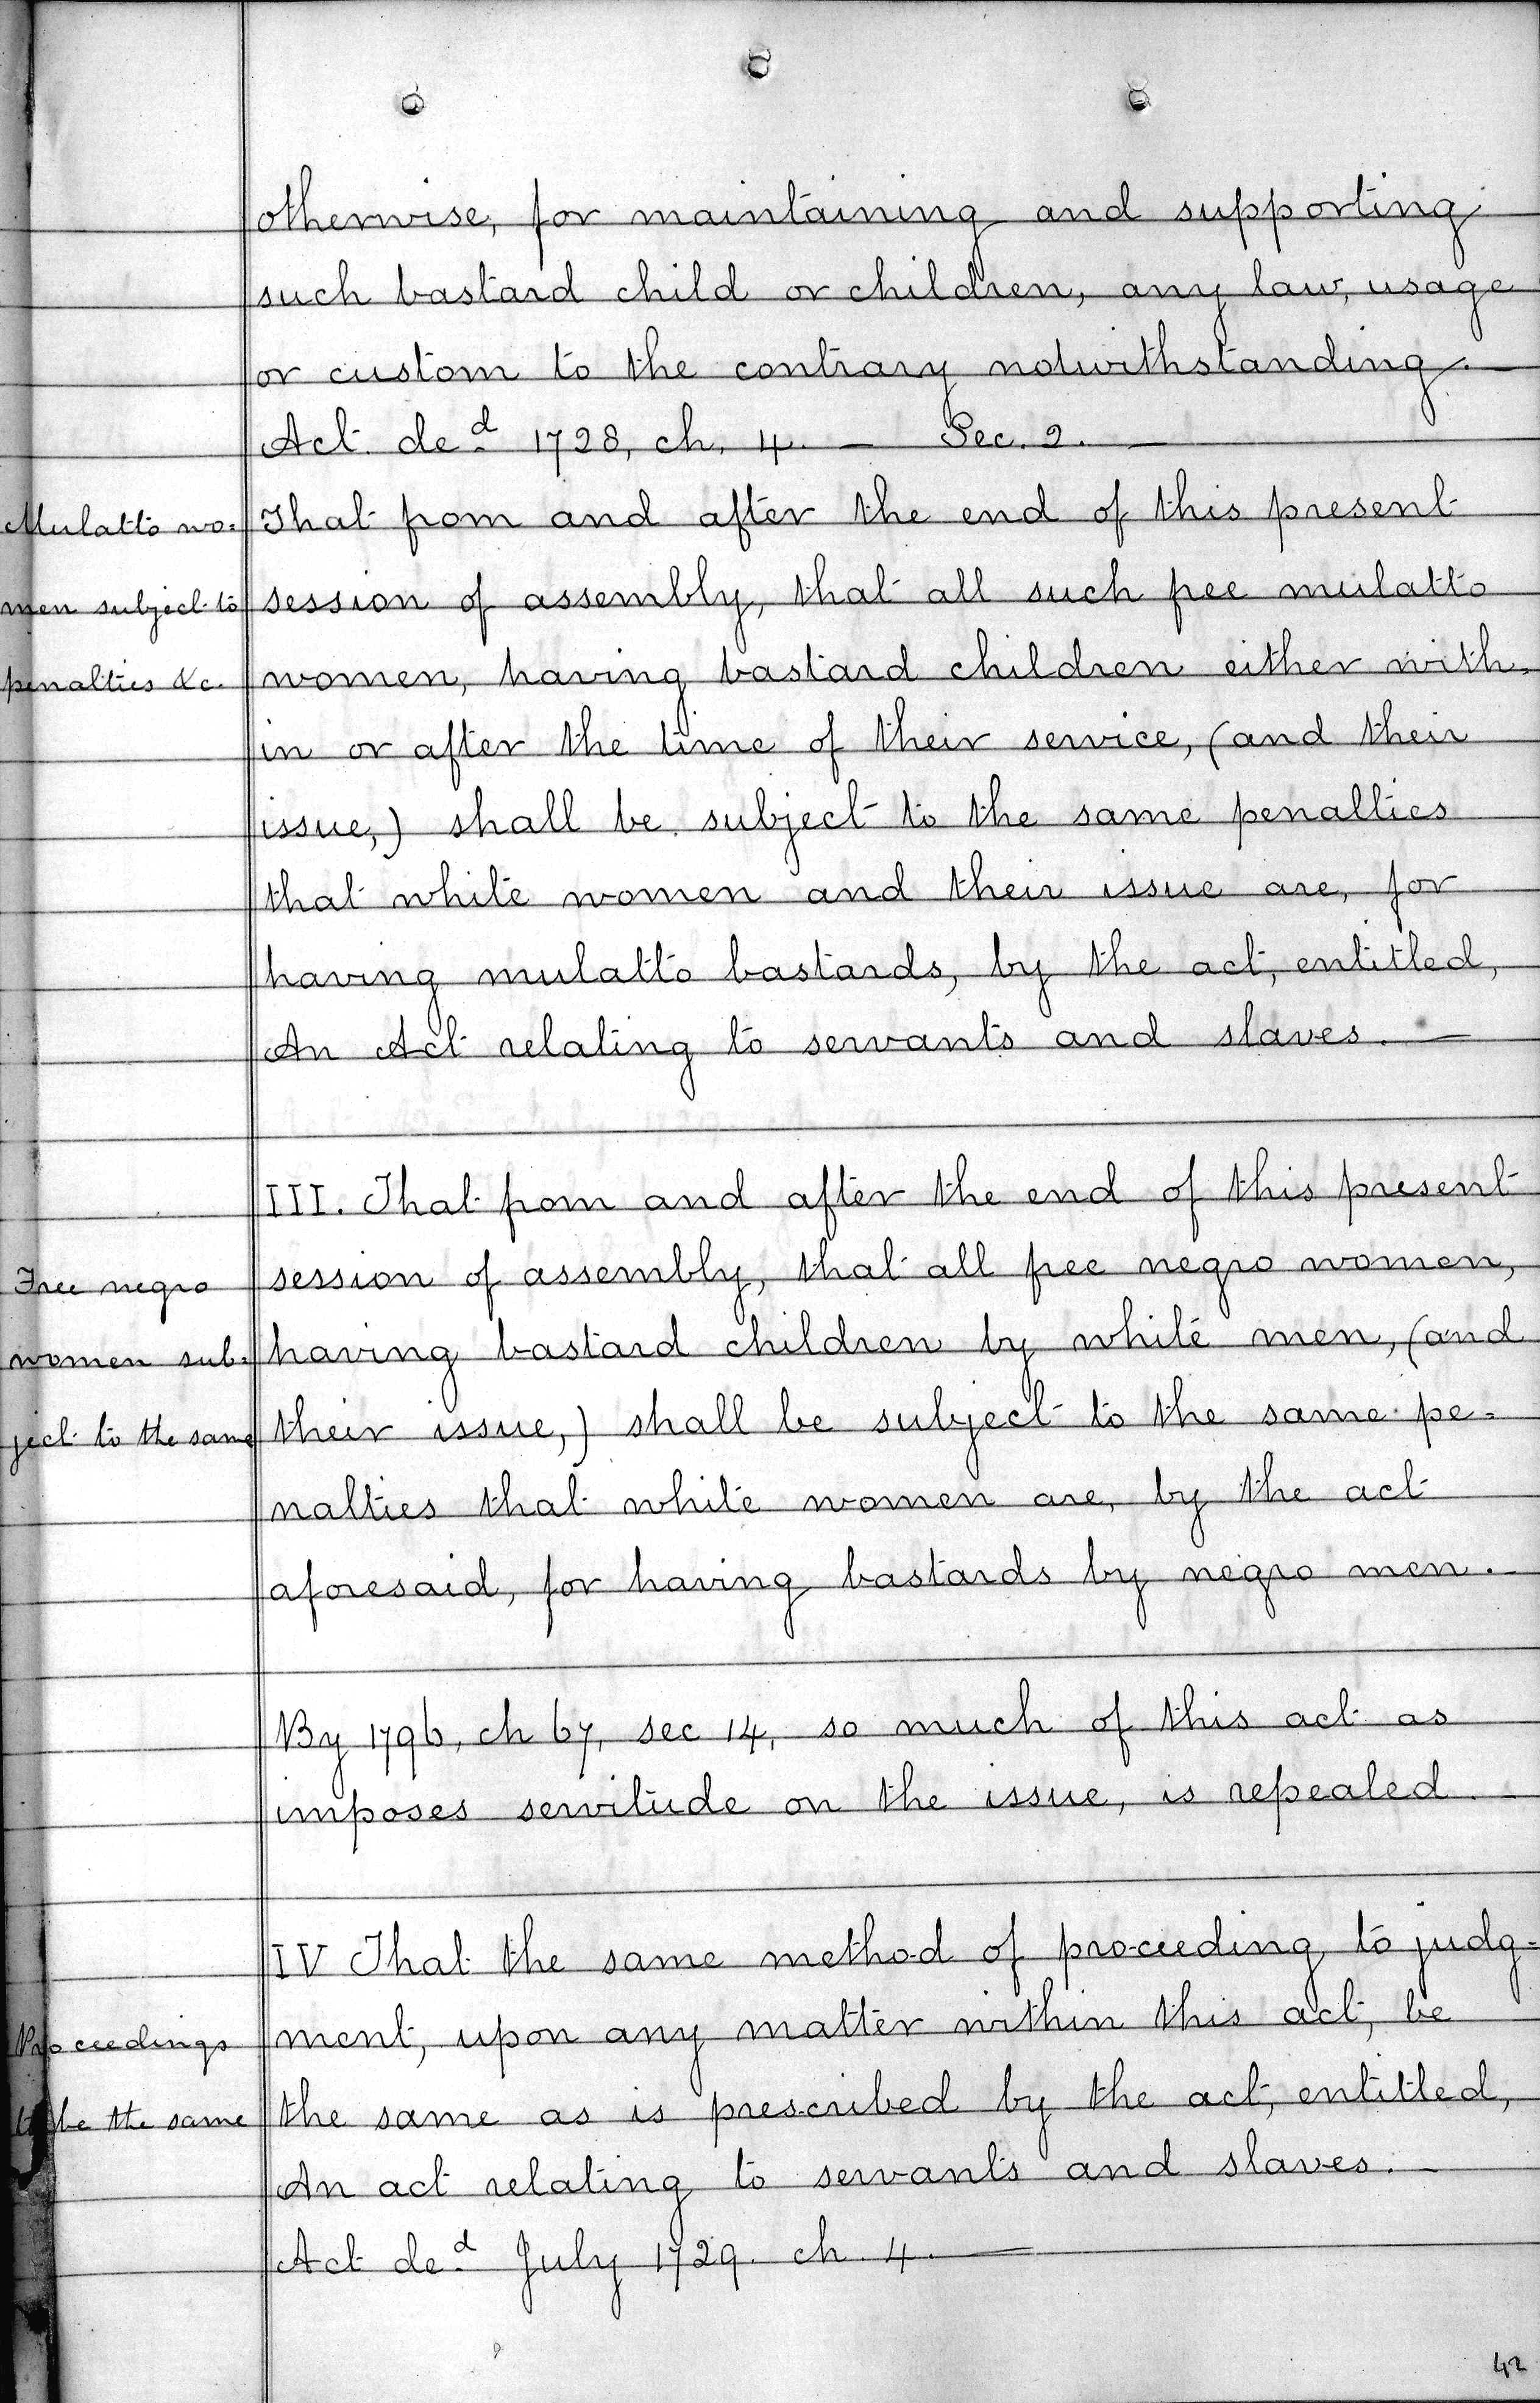 otherwise, for maintaining and supporting
such bastard child or children, any law, usage
or custom to the contrary notwithstanding. —
Act de.d 1728, ch. 4. — Sec. 2. —
Mulatto wo= That from and after the end of this present
men subject to session of assembly, that all such free mulatto
penalties &c. women, having bastard children either with=
in or after the time of their service, (and their
issue,) shall be subject to the same penalties
that white women and their issue are, for
having mulatto bastards, by the act, entitled,
An Act relating to servants and slaves. —
III. That from and after the end of this present
Free negro session of assembly, that all free negro women,
women sub= having bastard children by white men, (and
ject to the same their issue,) shall be subject to the same pe=
nalties that white women are, by the act
aforesaid, for having bastards by negro men. —
By 1796, ch 67, sec 14, so much of this act as
imposes servitude on the issue, is repealed. —
IV That the same method of proceeding to judg=
Proceedings ment, upon any matter within this act, be
to be the same the same as is prescribed by the act, entitled,
An act relating to servants and slaves. —
Act de.d July 1729. ch. 4. —
42